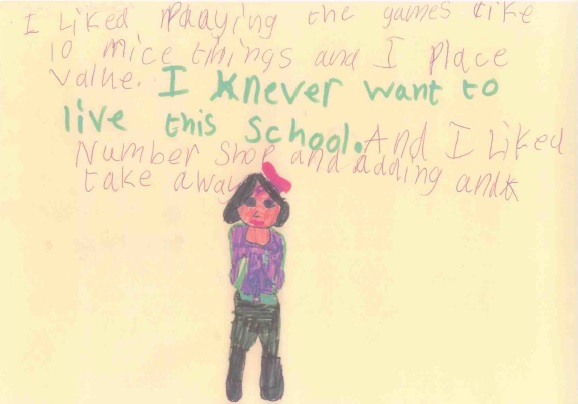 I Liked Playing the games like
10 mice things and I place
value. I never want to
live this School. And I Liked
Number Shop and adding and
take away